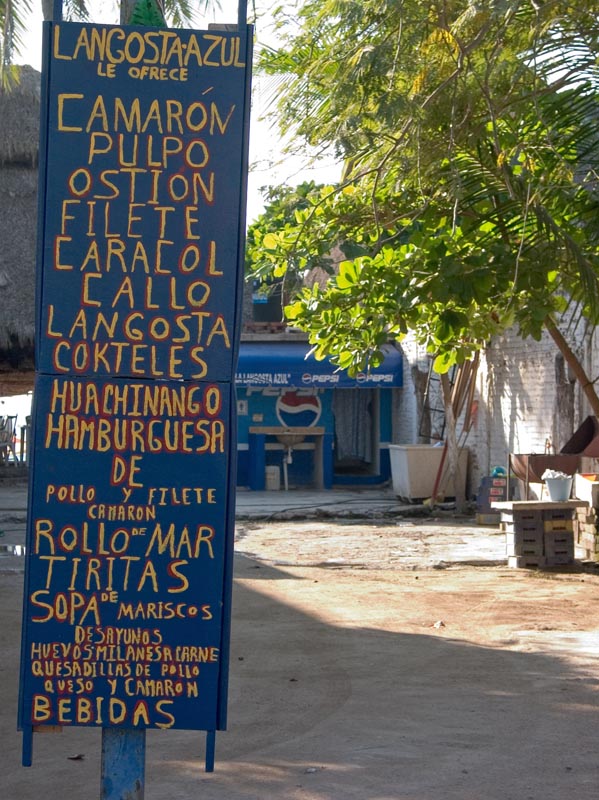 LANGOSTA-AZUL
LE OFRECE
CAMARÓN
PULPO
OSTIÓN
FILETE
CARACOL
CALLO
LANGOSTA
COKTELES
HUACHINANGO
HAMBURGUESA
DE
POLLO Y FILETE
CAMARON
ROLLO DE MAR
TIRITAS
SOPA DE MARISCOS
DESAYUNOS
HUEVOS MILANESA CARNE
QUESADILLAS DE POLLO
QUESO Y CAMARON
BEBIDAS
LA LANGOSTA AZUL" PEPSI PEPSI
PEPSI